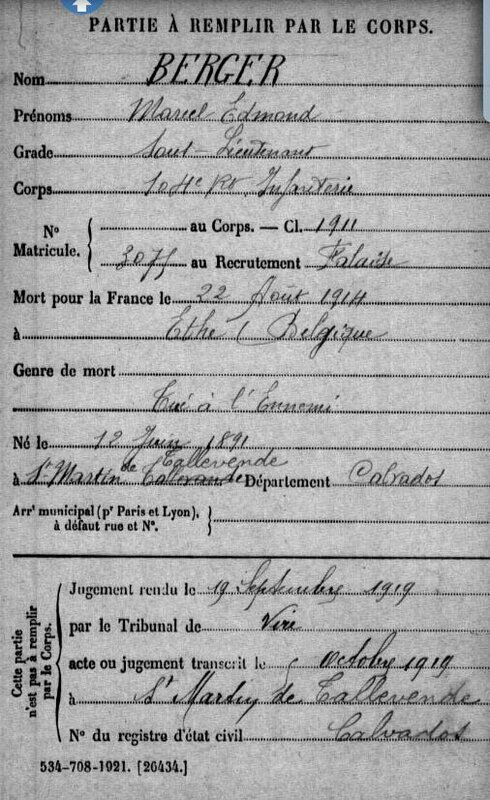 PARTIE À REMPLIR PAR LE CORPS.
Nom BERGER
Prénoms Marcel Edmond
Grade Sous-Lieutenant
Corps 104e Rt Infanterie
N° Matricule. { au Corps. — Cl. 1911
3075 au Recrutement Falaise
Mort pour la France le 22 Août 1914
à Ethe (Belgique
Genre de mort
Tué à l'Ennemi
Né le 12 Juin 1891
de Tallevende
à St Martin Département Calvados
Arrt municipal (pr Paris et Lyon),
à défaut rue et N°.
Cette partie n'est pas à remplir par le Corps.
Jugement rendu le 19 Septembre 1919
par le Tribunal de Vire
acte ou jugement transcrit le Octobre 1919
à St Martin de Tallevende
N° du registre d'état civil Calvados
534-708-1921. [26434.]